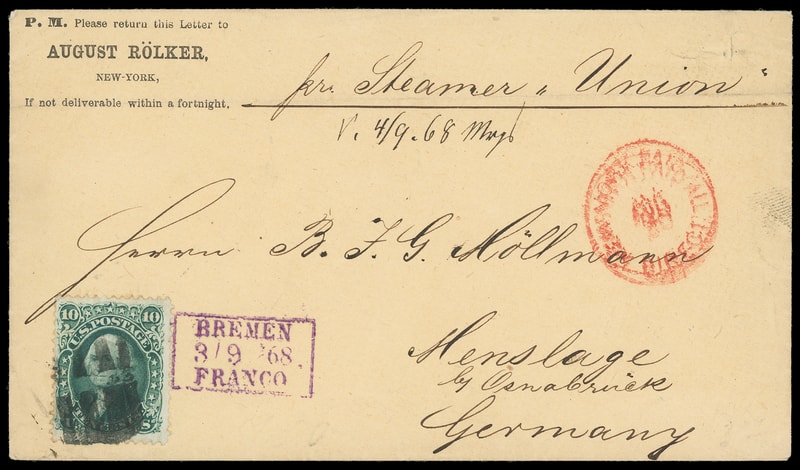 P. M. Please return this Letter to
AUGUST RÖLKER,
NEW-YORK,
If not deliverable within a fortnight.
pr. Steamer „Union“
V. 4/9. 68 Mrgs
NEW YORK PAID ALL DIRECT
Herrn B. F. G. Möllmann
10 10
U.S. POSTAGE
BREMEN
3/9 68.
FRANCO
Menslage
by Osnabrück
Germany